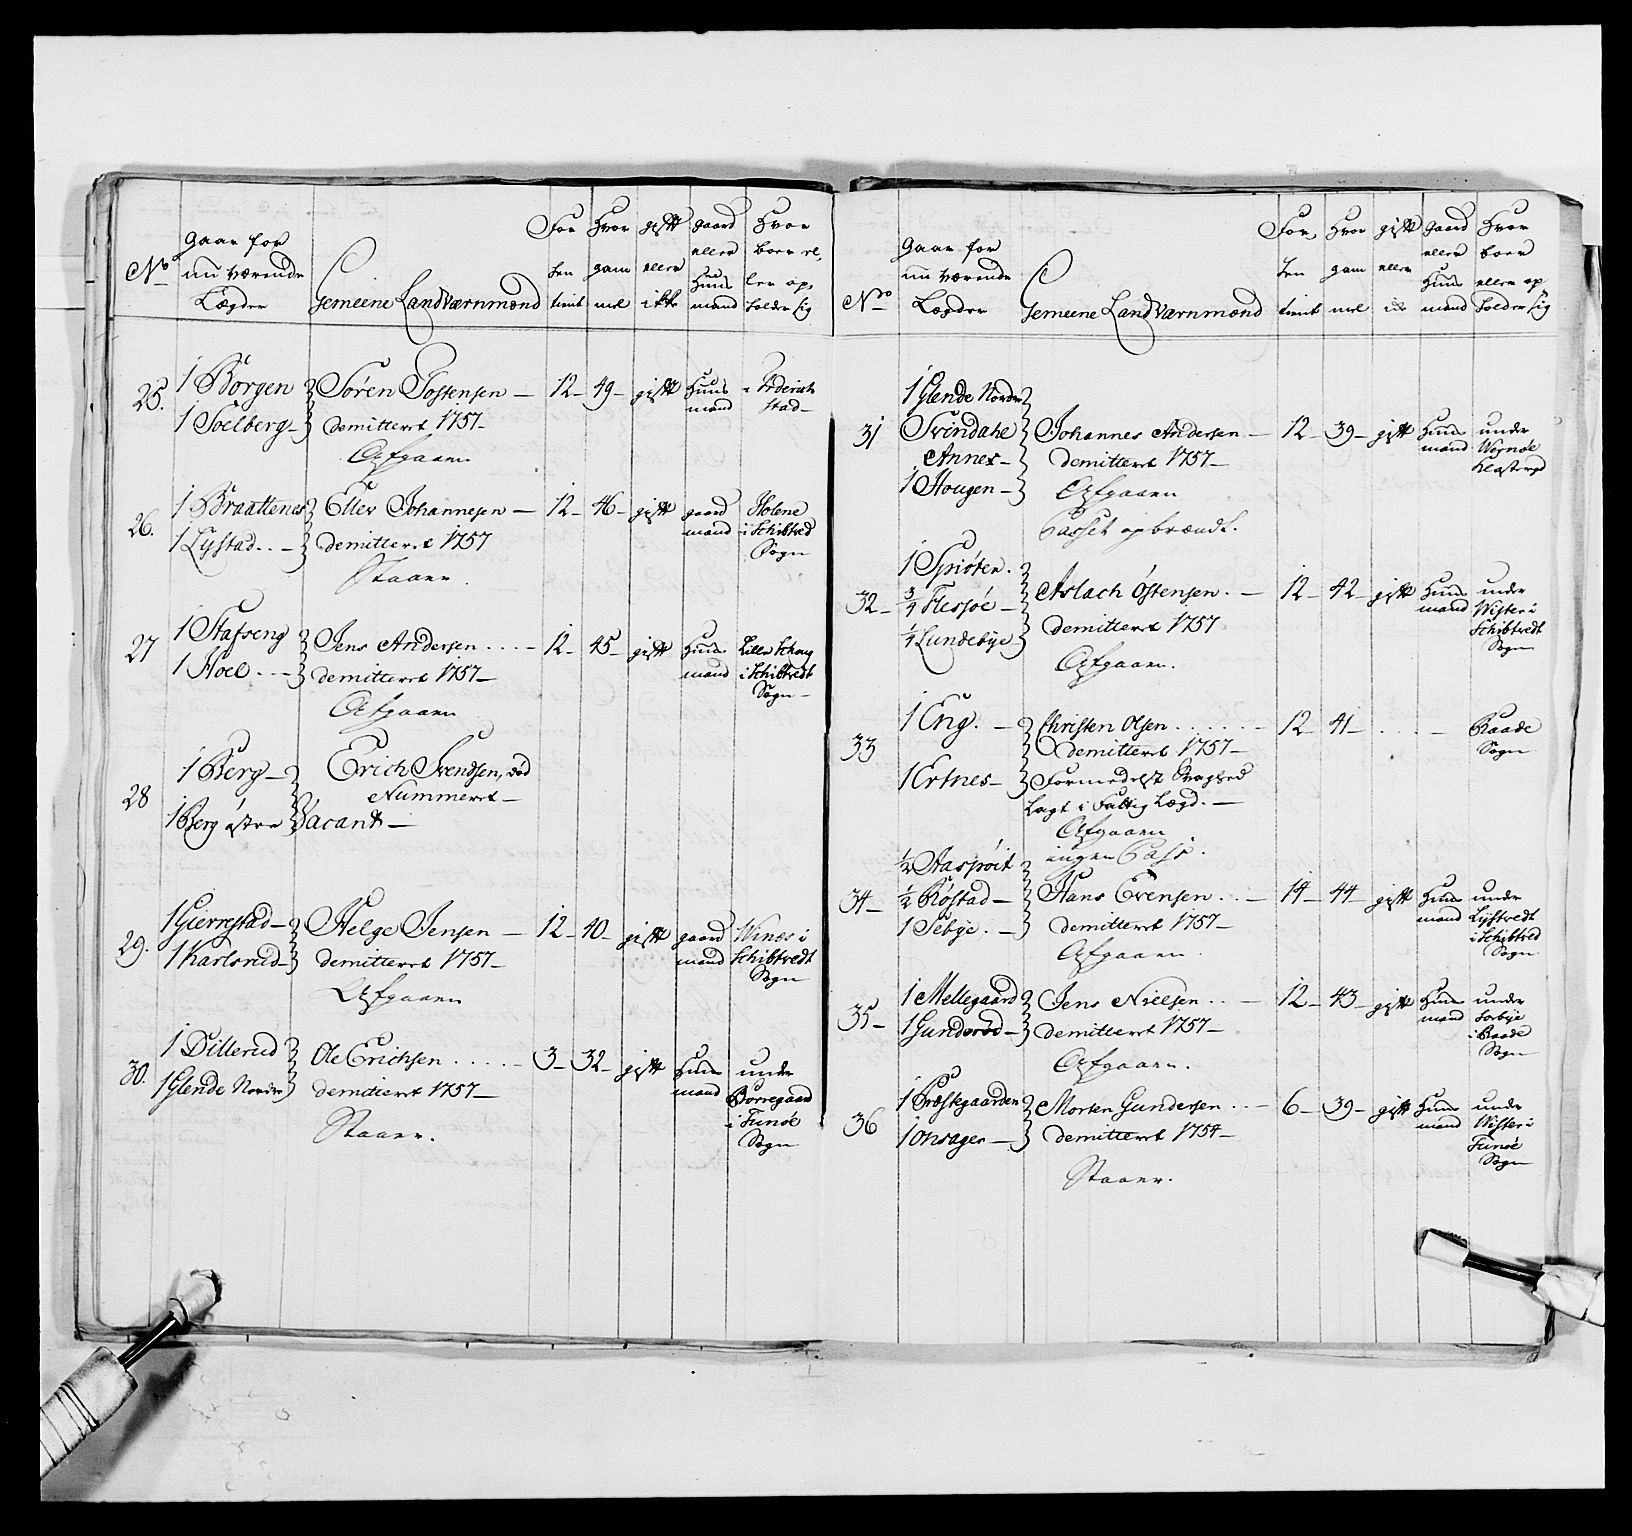 No
Gaar for
nu værende
Lægder
Gemeene Landværnmænd
For
hen
tient
Hvor
gam
mel
gift
eller
ikke
gaard
eller
Huus
mand
Hvor
boer el,
ler op,
holder sig
25.
1 Borgen
1 Soelberg
Søren Tostensen
demitteret 1757
Afgaaer
12
49
gift
Huus
mand
i Friderich
stad
26.
1 Braattenes
1 Lystad
Ellev Johannesen
demitteret 1757
Staaer.
12
46
gift
gaard
mand
Holene
i Schibtved
Sogn
27
1 Stafseng
1 Hoel
Jens Andersen
demitteret 1757
Afgaaer
12
45
gift
Huus
mand
Lille
i Schibtvedt
Sogn
28
1 Berg
1 Berg østre
Erich Svendsen, død
Nummeret
Vacant
29.
1 Gierrestad
1 Karlsrud
Helge Jensen
demitteret 1757
Afgaaer
12
40
gift
gaard
mand
Winæs i
Schibtvedt
Sogn
30.
1 Dillerud
1 Glende Nordre
Ole Erichsen
demitteret 1757
Staaer.
3
32
gift
Huus
mand
under
Borregaard
i Tunøe
Sogn
No
Gaar for
nu værende
Lægder
Gemeene Landværnmænd
For,
hen
tient
Hvor
gam
mel
gift
eller
gaard
eller
Huus
mand
Hvor
boer
eller op,
holder sig
31
1 Glende Nordre
Svindahl
Annex
1 Hougen
Johannes Andersen
demitteret 1757
Afgaaer
Passet opbrændt.
12
39
gift
Huus
mand
under
Wernøe
Klostergd
32
1 Spiøten.
3/4 Flessøe
1/4 Lundebye
Aslach Østensen.
demitteret 1757
Afgaaer.
12
42
gift
Huus
mand
under
Wister i
Schibtvedt
Sogn
33
1 Eng.
1 Ertnes
Christen Olsen
demitteret 1757
Formedelst Svaghed
Lagt i Fattig Lægd.
Afgaaer
ingen Pass.
12
41
Raade
Sogn
34
1/2 Haasrøit
1/2 Røstad
1 Sebye.
Hans Evensen
demitteret 1757
Afgaaer.
14
44
gift
Huus
mand
under
Lystvedt
i Schibtved
Sogn
35
1 Mellegaard
1 Gunderød
Jens Nielsen
demitteret 1757
Afgaaer.
12
43
gift
Huus
mand
under
i Raade
Sogn
36
1 Præstegaarden
1 Onsager
Morten Gundersen
demitteret 1754
Staaer.
6
39
gift
Huus
mand
under
Wister i
Tunøe
Sogn